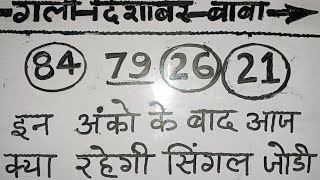 गली दिशाबर बाबा
84 79 26 21
इन अंको के बाद आज
क्या रहेगी सिंगल जोडी